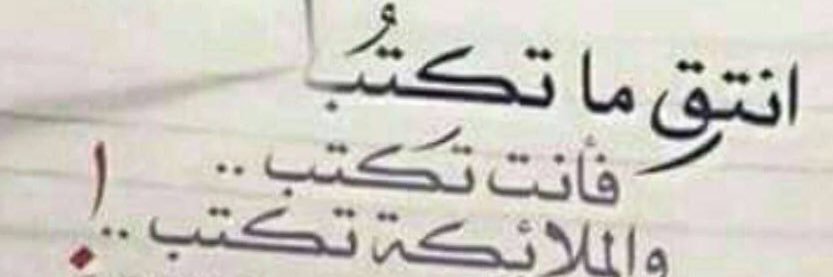 انتقِ ما تكتبُ
فأنت تكتب ..
والملائكة تكتب ..!